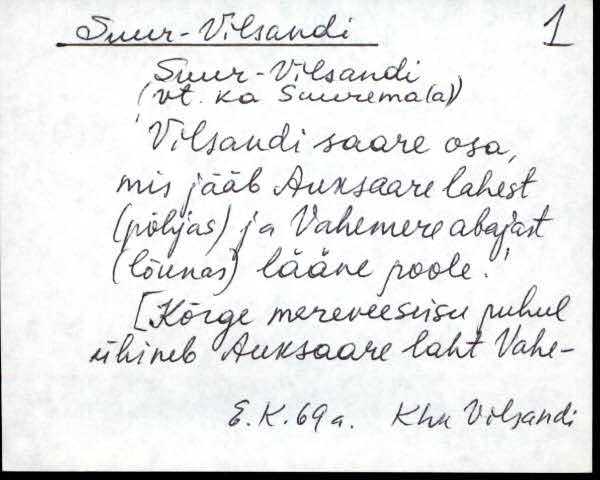 Suur-Vilsandi 1
Suur-Vilsandi
(vt. ka Suurema(a))
Vilsandi saare osa,
mis jääb Auksaare lahest
(põhjas) ja Vahemere abajast
(lõunas) lääne poole.
[Kõrge mereveesuisu puhul
ühineb Auksaare laht Vahe-
E.K.69a. Khk Vilsandi